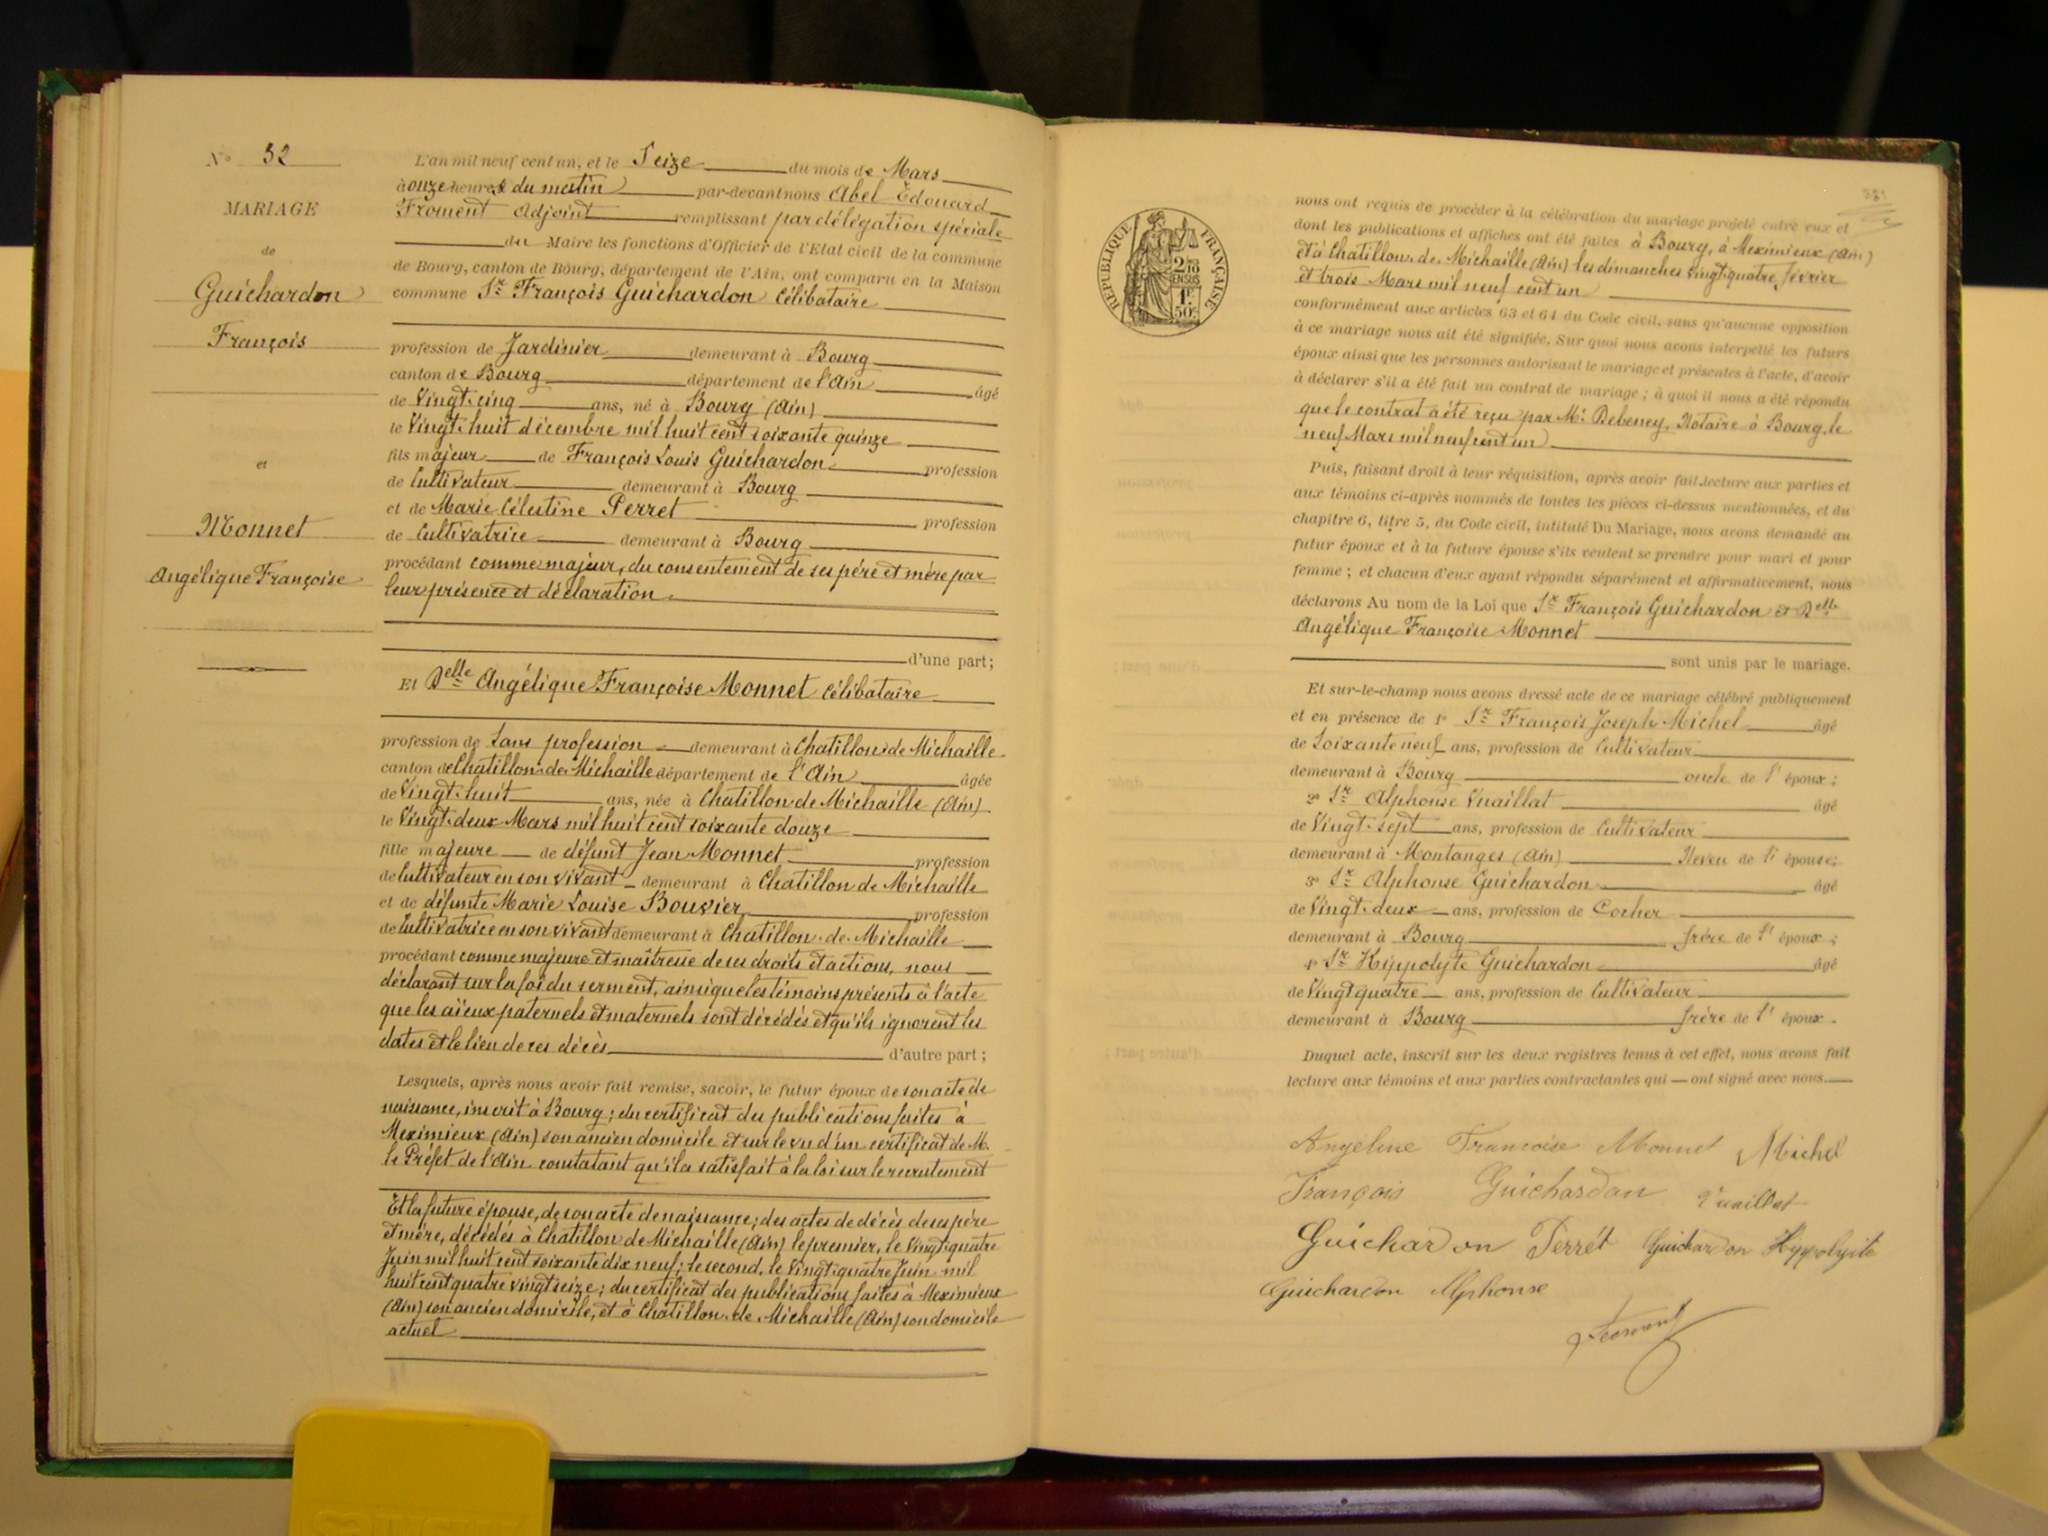 N° 32
MARIAGE
de
Guichardon
François
et
Monnet
Angélique Françoise
L'an mil neuf cent un, et le Seize du mois de Mars
à onze heures du matin par-devant nous Abel Edouard
Froment Adjoint remplissant par délégation spéciale
du Maire les fonctions d'Officier de l'Etat civil de la commune
de Bourg, canton de Bourg, département de l'Ain, ont comparu en la Maison
commune Sr François Guichardon célibataire
profession de Jardinier demeurant à Bourg
canton de Bourg département de l'Ain âgé
de Vingt-cinq ans, né à Bourg (Ain)
le Vingt-huit décembre mil huit cent soixante quinze
fils majeur de François Louis Guichardon profession
de Cultivateur demeurant à Bourg
et de Marie Célestine Perret profession
de Cultivatrice demeurant à Bourg
procédant comme majeur, du consentement de ses père et mère par
leur présence et déclaration.
d'une part;
Et Delle Angélique Françoise Monnet célibataire
profession de Sans profession demeurant à Chatillon de Michaille
canton de Chatillon-de-Michaille département de l'Ain âgée
de Vingt-huit ans, née à Chatillon de Michaille (Ain)
le Vingt-deux Mars mil huit cent soixante douze
fille majeure de défunt Jean Monnet profession
de Cultivateur en son vivant demeurant à Chatillon de Michaille
et de défunte Marie Louise Bouvier profession
de Cultivatrice en son vivant demeurant à Chatillon-de-Michaille
procédant comme majeure et maîtresse de ses droits et actions, nous
déclarant sur la foi du serment, ainsi que les témoins présents à l'acte
que les aïeux paternels et maternels sont décédés et qu'ils ignorent les
dates et le lieu de ces décès d'autre part;
Lesquels, après nous avoir fait remise, savoir, le futur époux de son acte de
naissance, inscrit à Bourg; du certificat des publications faites à
Meximieux (Ain) son ancien domicile et sur le vu d'un certificat de M.
le Préfet de l'Ain constatant qu'il a satisfait à la loi sur le recrutement
Et la future épouse, de son acte de naissance; des actes de décès de ses père
et mère, décédés à Chatillon de Michaille (Ain) le premier, le Vingt-quatre
Juin mil huit cent soixante dix neuf; le second, le Vingt-quatre Juin mil
huit cent quatre vingt seize; du certificat des publications faites à Meximieux
(Ain) son ancien domicile, et à Chatillon-de-Michaille (Ain) son domicile
actuel
RÉPUBLIQUE FRANÇAISE
2/10 EN SUS
1F 50c
nous ont requis de procéder à la célébration du mariage projeté entre eux et
dont les publications et affiches ont été faites à Bourg, à Meximieux (Ain)
et à Chatillon-de-Michaille (Ain) les dimanches vingt-quatre février
et trois Mars mil neuf cent un
conformément aux articles 63 et 64 du Code civil, sans qu'aucune opposition
à ce mariage nous ait été signifiée, Sur quoi nous avons interpellé les futurs
époux ainsi que les personnes autorisant le mariage et présentes à l'acte, d'avoir
à déclarer s'il a été fait un contrat de mariage; à quoi il nous a été répondu
que le contrat a été reçu par Me Debeney, Notaire à Bourg, le
neuf Mars mil neuf cent un
Puis, faisant droit à leur réquisition, après avoir fait lecture aux parties et
aux témoins ci-après nommés de toutes les pièces ci-dessus mentionnées, et du
chapitre 6, titre 5, du Code civil, intitulé Du Mariage, nous avons demandé au
futur époux et à la future épouse s'ils veulent se prendre pour mari et pour
femme; et chacun d'eux ayant répondu séparément et affirmativement, nous
déclarons Au nom de la Loi que Sr François Guichardon et Delle
Angélique Françoise Monnet
sont unis par le mariage.
Et sur-le-champ nous avons dressé acte de ce mariage célébré publiquement
et en présence de 1° Sr François Joseph Michel âgé
de Soixante neuf ans, profession de Cultivateur
demeurant à Bourg oncle de l'époux;
2° Sr Alphonse Vuaillat âgé
de Vingt-sept ans, profession de Cultivateur
demeurant à Montanges (Ain) Neveu de l'épouse;
3° Sr Alphonse Guichardon âgé
de Vingt-deux ans, profession de Cocher
demeurant à Bourg frère de l'époux;
4° Sr Hyppolyte Guichardon âgé
de Vingt quatre ans, profession de Cultivateur
demeurant à Bourg frère de l'époux.
Duquel acte, inscrit sur les deux registres tenus à cet effet, nous avons fait
lecture aux témoins et aux parties contractantes qui ont signé avec nous.
Angeline Francoise Monnet Michel
François Guichardan Vuaillat
Guichardon Perrét Guichardon Hyppolyite
Guichardon Alphonse
Froment